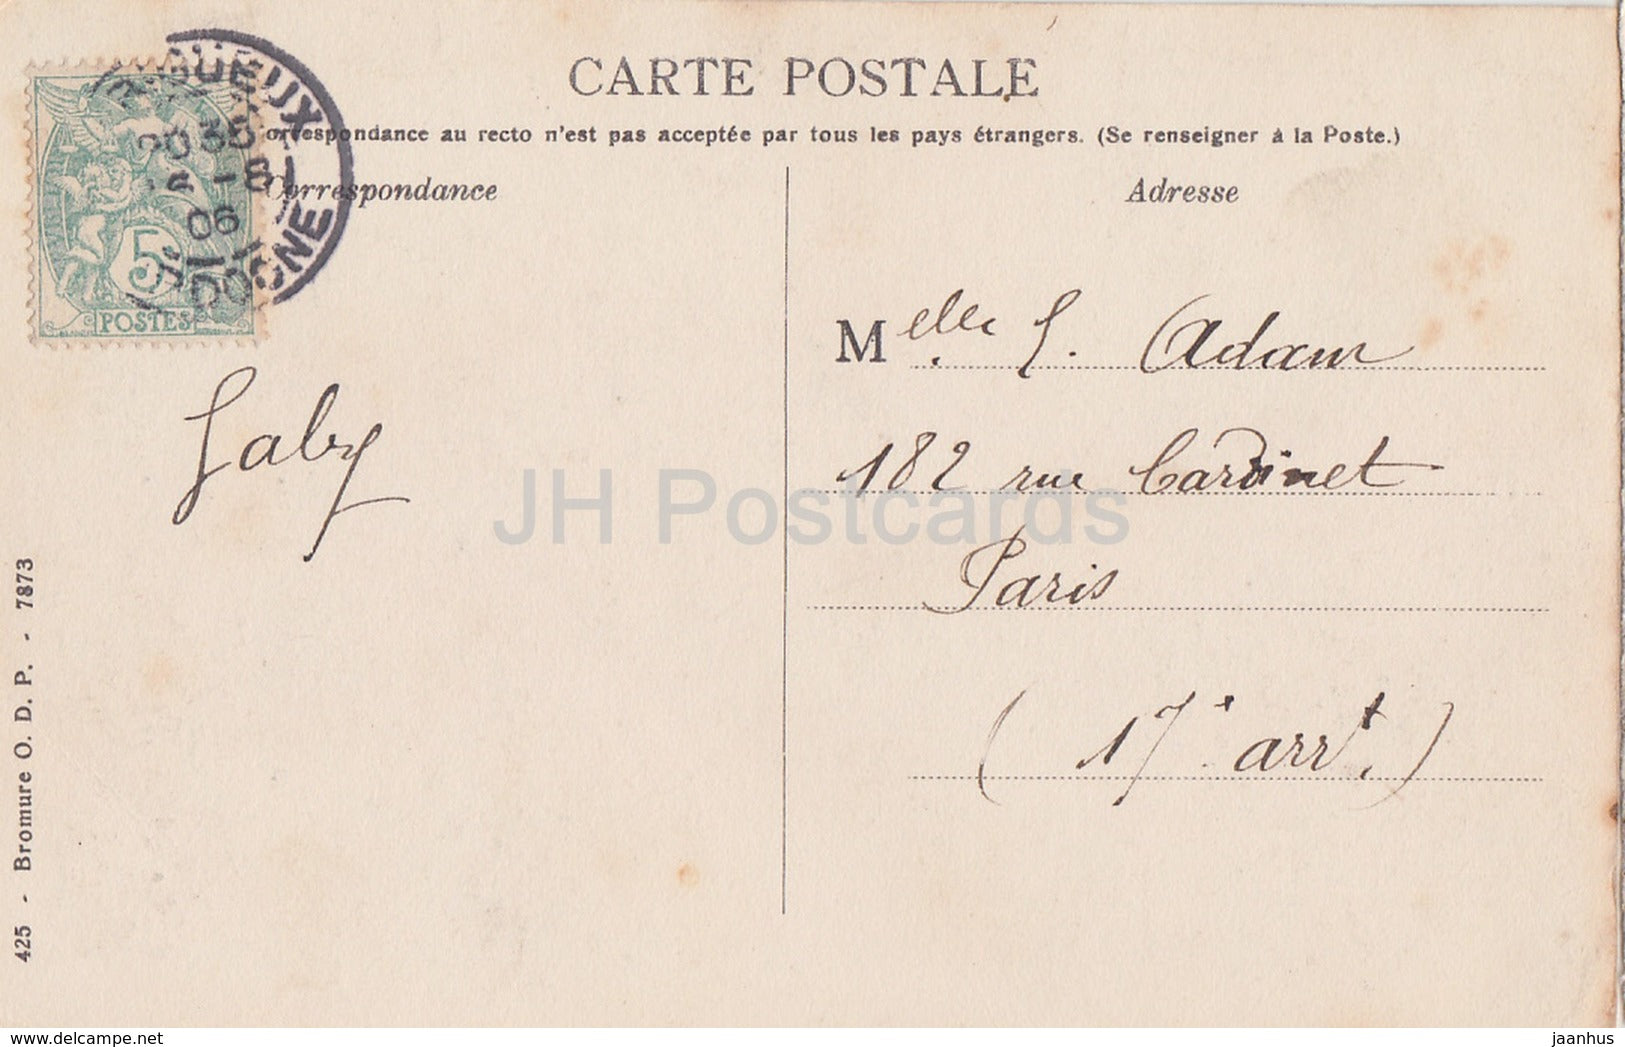 CARTE POSTALE
orrespondance au recto n'est pas acceptée par tous les pays étrangers. (Se renseigner à la Poste.)
Correspondance
Adresse
GUEUX
35
06
DOGNE
5
POSTES
Melle Adam
182 rue Cardinet
Paris
(17e arrt.)
Gaby
JH Postcards
425 - Bromure O. D. P. - 7873
www.delcampe.net
jaanhus